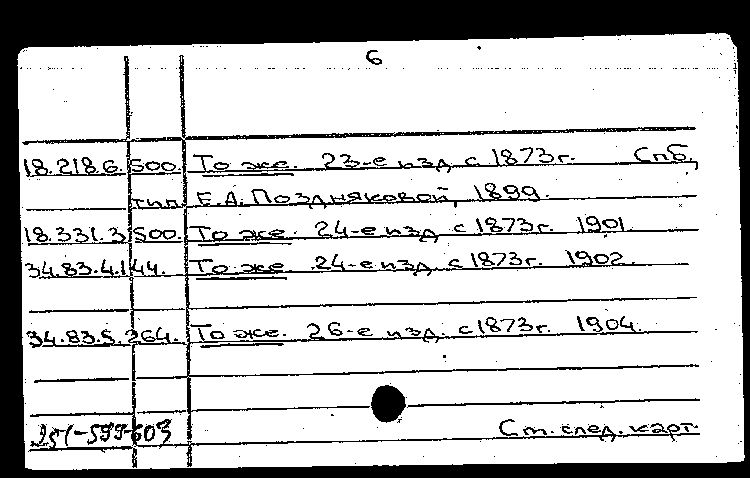 6
18.218.6.500. То же. 23-е изд. с 1873г. Спб,
тип. Е.А. Поздняковой, 1899.
18.331.3.500. То же. 24-е изд. с 1873г. 1901.
34.83.4.144. То же. 24-е изд. с 1873г. 1902.
34.83.5.264. То же. 26-е изд. с 1873г. 1904.
См. след. карт.